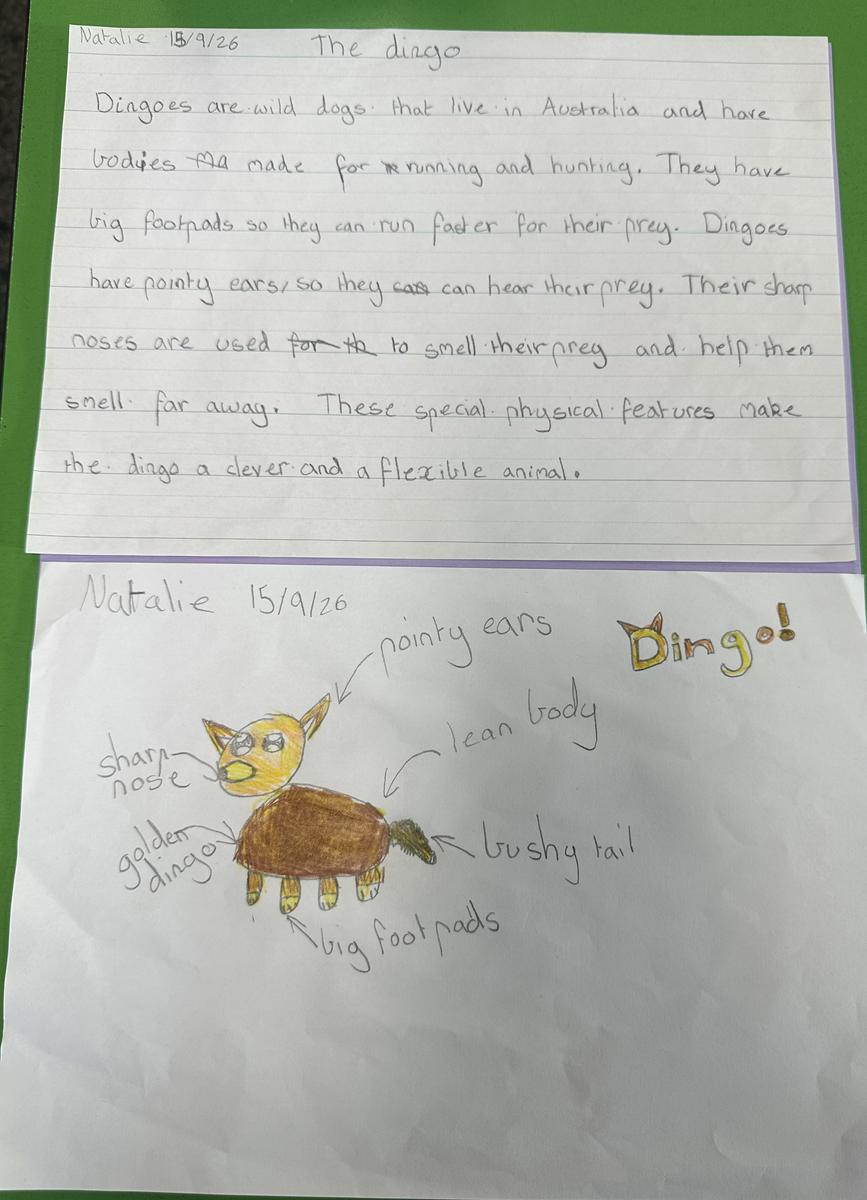 Natalie 15/9/26 The dingo
Dingoes are wild dogs that live in Australia and have
bodies made for running and hunting. They have
big footpads so they can run faster for their prey. Dingoes
have pointy ears, so they can hear their prey. Their sharp
noses are used for th to smell their prey and help them
smell far away. These special physical features make
the dingo a clever and a flexible animal.
Natalie 15/9/26
pointy ears
Dingo!
lean body
sharp
nose
golden
dingo
bushy tail
big footpads